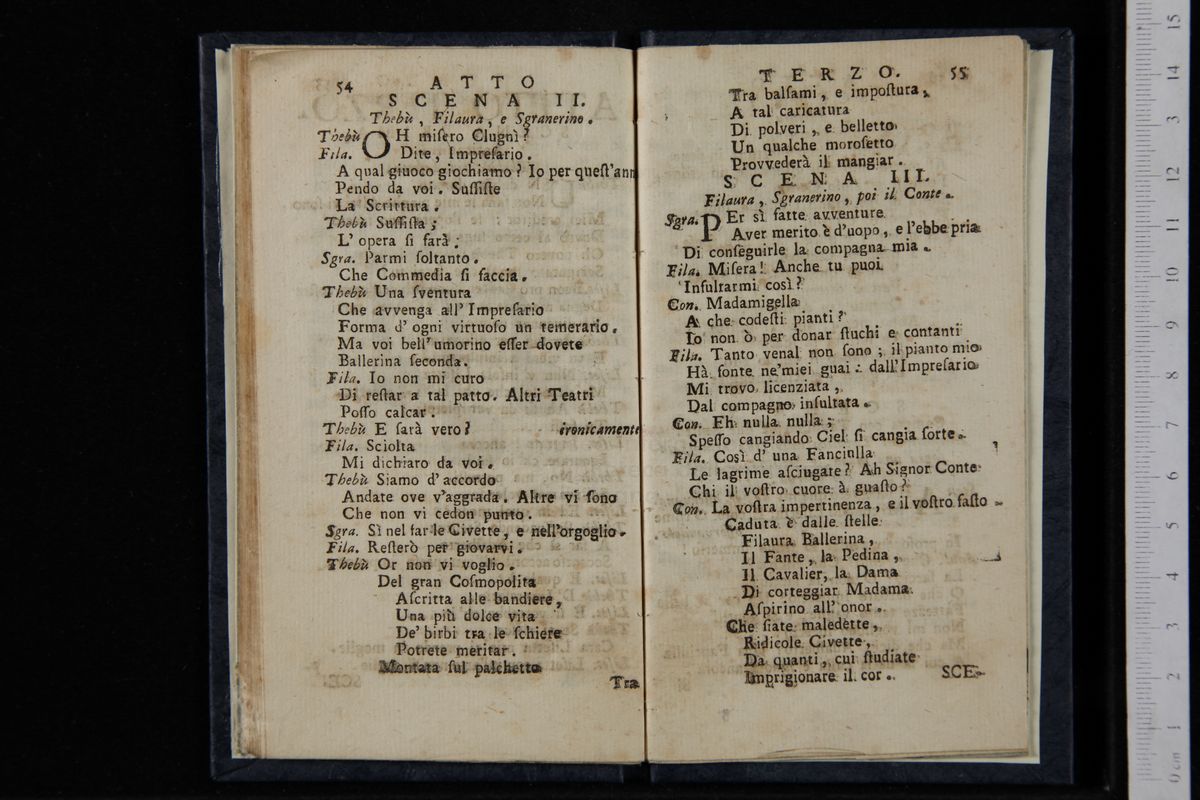 54
ATTO
SCENA II.
Thebù, Filaura, e Sgranerino.
Thebù OH misero Clugnì?
Fila. Dite, Impresario.
A qual giuoco giochiamo? Io per quest'ann
Pendo da voi. Sussiste
La Scrittura.
Thebù Sussista;
L' opera si farà.
Sgra. Parmi soltanto.
Che Commedia si faccia.
Thebù Una sventura
Che avvenga all' Impresario
Forma d' ogni virtuoso un temerario.
Ma voi bell'umorino esser dovete
Ballerina seconda.
Fila. Io non mi curo
Di restar a tal patto. Altri Teatri
Posso calcar.
Thebù E sarà vero? ironicamente
Fila. Sciolta
Mi dichiaro da voi.
Thebù Siamo d' accordo
Andate ove v'aggrada. Altre vi sono
Che non vi cedon punto.
Sgra. Sì nel far le Civette, e nell'orgoglio.
Fila. Resterò per giovarvi.
Thebù Or non vi voglio.
Del gran Cosmopolita
Ascritta alle bandiere,
Una più dolce vita
De' birbi tra le schiere
Potrete meritar.
Montata sul palchetto
Tra
TERZO. 55
Tra balsami, e impostura,
A tal caricatura
Di polveri, e belletto
Un qualche morosetto
Provvederà il mangiar.
SCENA III.
Filaura, Sgranerino, poi il Conte.
Sgra. PEr sì fatte avventure
Aver merito è d'uopo, e l'ebbe pria
Di conseguirle la compagna mia.
Fila. Misera! Anche tu puoi
Insultarmi così?
Con. Madamigella
A che codesti pianti?
Io non ò per donar stuchi e contanti
Fila. Tanto venal non sono; il pianto mio
Hà fonte ne'miei guai: dall'Impresario
Mi trovo licenziata,
Dal compagno insultata.
Con. Eh nulla nulla;
Spesso cangiando Ciel si cangia sorte.
Fila. Così d' una Fanciulla
Le lagrime asciugate? Ah Signor Conte
Chi il vostro cuore à guasto?
Con. La vostra impertinenza, e il vostro fasto
Caduta è dalle stelle
Filaura Ballerina,
Il Fante, la Pedina,
Il Cavalier, la Dama
Di corteggiar Madama
Aspirino all' onor.
Che siate maledette,
Ridicole Civette,
Da quanti, cui studiate
Imprigionare il cor.
SCE-
15
14
13
12
11
10
9
8
7
6
5
4
3
2
1
0 cm